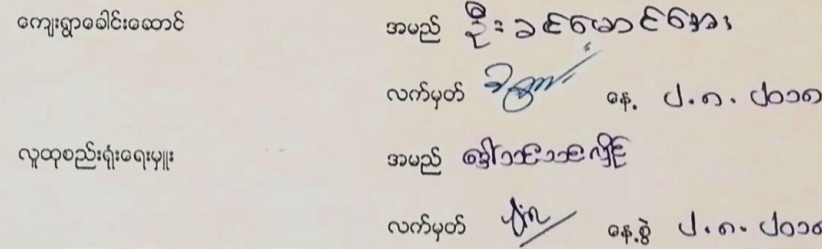 ကျေးရွာခေါင်းဆောင် အမည် ဦးခင်မောင်အေး
လက်မှတ် နေ့ ၂.၈.၂၀၁၈
လူထုစည်းရုံးရေးမှူး အမည် ဒေါ်သင်းသင်းလှိုင်
လက်မှတ် နေ့စွဲ ၂.၈.၂၀၁၈